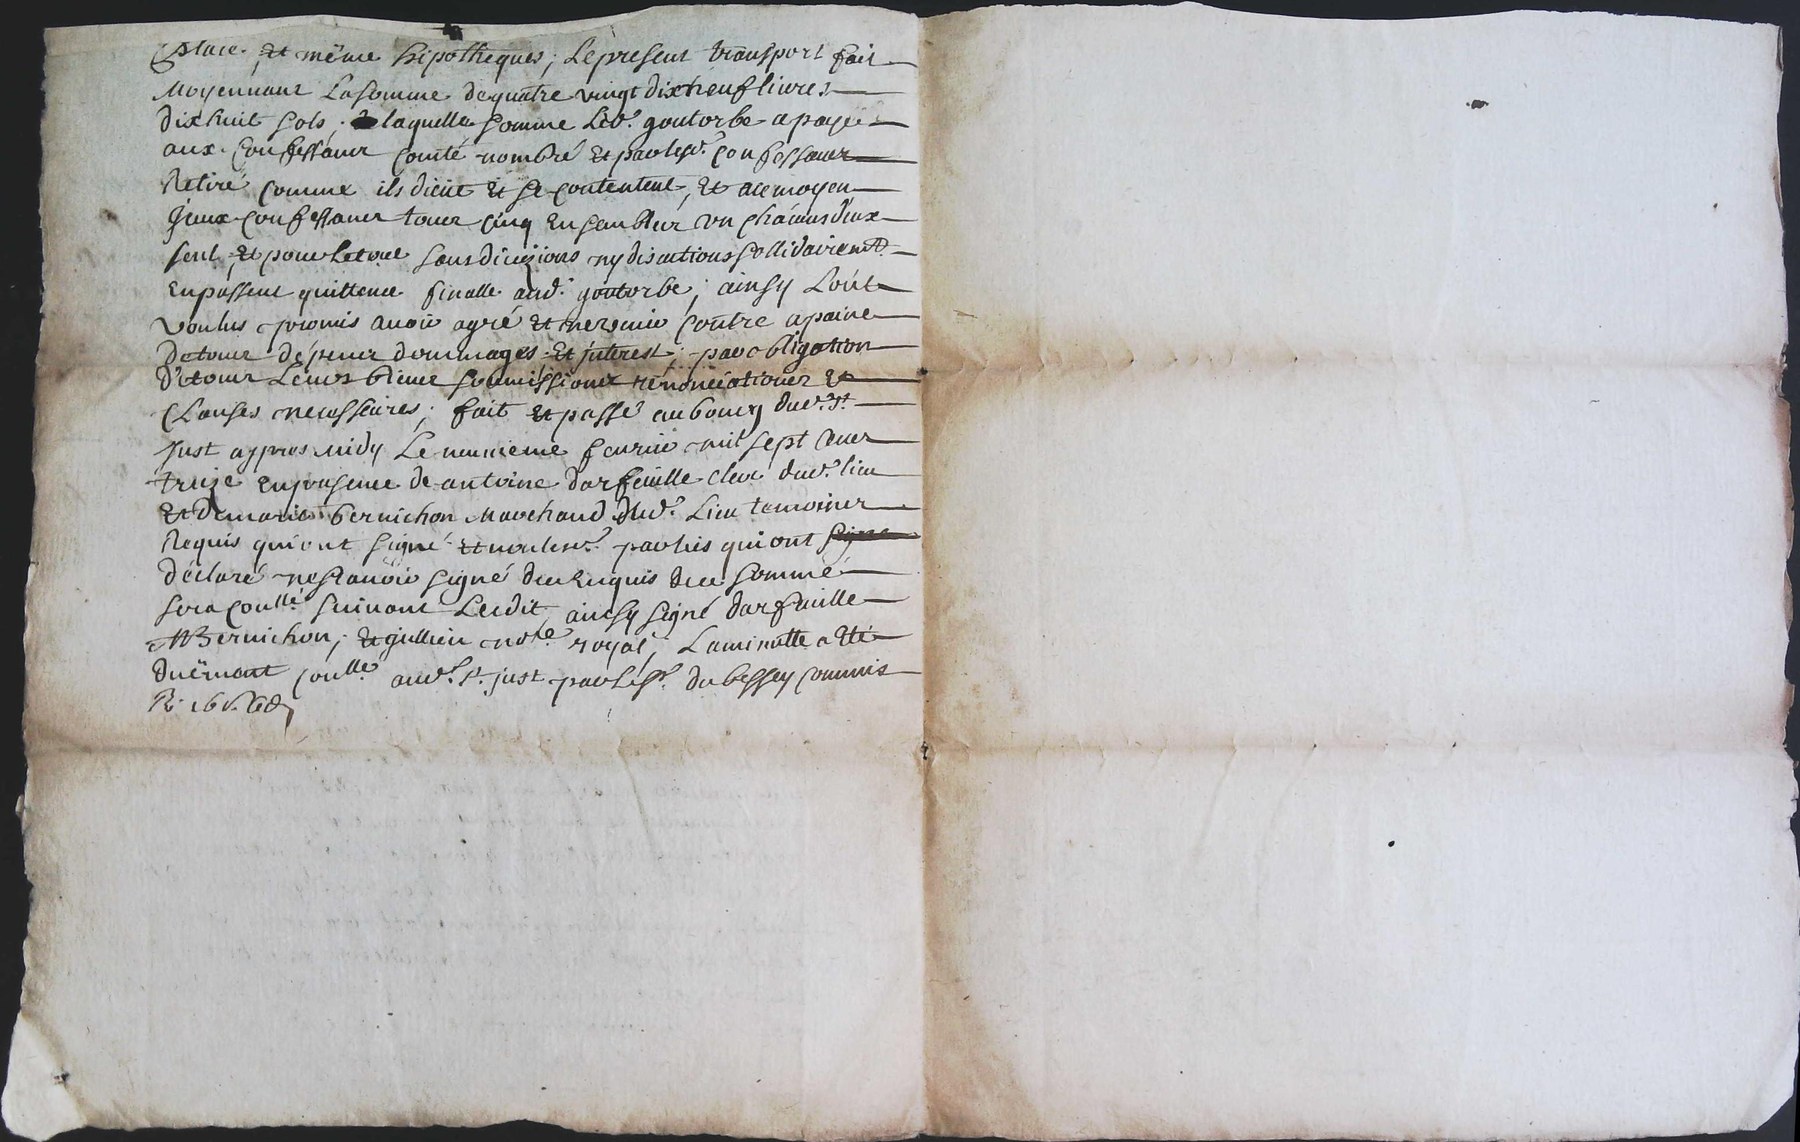 place, et même hipotheques; Le present transport fait
Moyennant La somme de quatre vingt dix neuf livres
dix huit sols; laquelle somme Led.t goutorbe a payé
aux Confessants Comté nombré Et par lesd.t Confessants
Retiré Comme ils dient Et se Contentent, Et a ce moyen
yceux Confessants tous Cinq Ensemble un chacuns d'eux
seul, Et pour Le tout sans divizions ny discutions sollidairem.t
En passent quittence finalle aud.t goutorbe; ainsy L'ont
voulus promis avoir agré Et ne venir Contre a paine
De tous dépens dommages Et jnterest; par obligation
De tous Leurs biens soumissions renonciations Et
Clauses necessaires; fait Et passé au bourg dud.t St.
Just appres midy Le neuvieme fevrier mil sept Cens
treize En presence de antoine darfeuille clerc dud.t lieu
Et de marie bernichon Marchand dud.t Lieu temoins
Requis qui ont signé Et non lesd.t parties qui ont
déclaré ne scavoir signé de ce Enquis De ce sommé
sera Conllé suivant Ledit ainsy signé darfeuille
M Bernichon; Et jullien no.re royal, La minutte a Eté
duëmant Conllé aud.t St. just par Le Sr. du bessey Commis